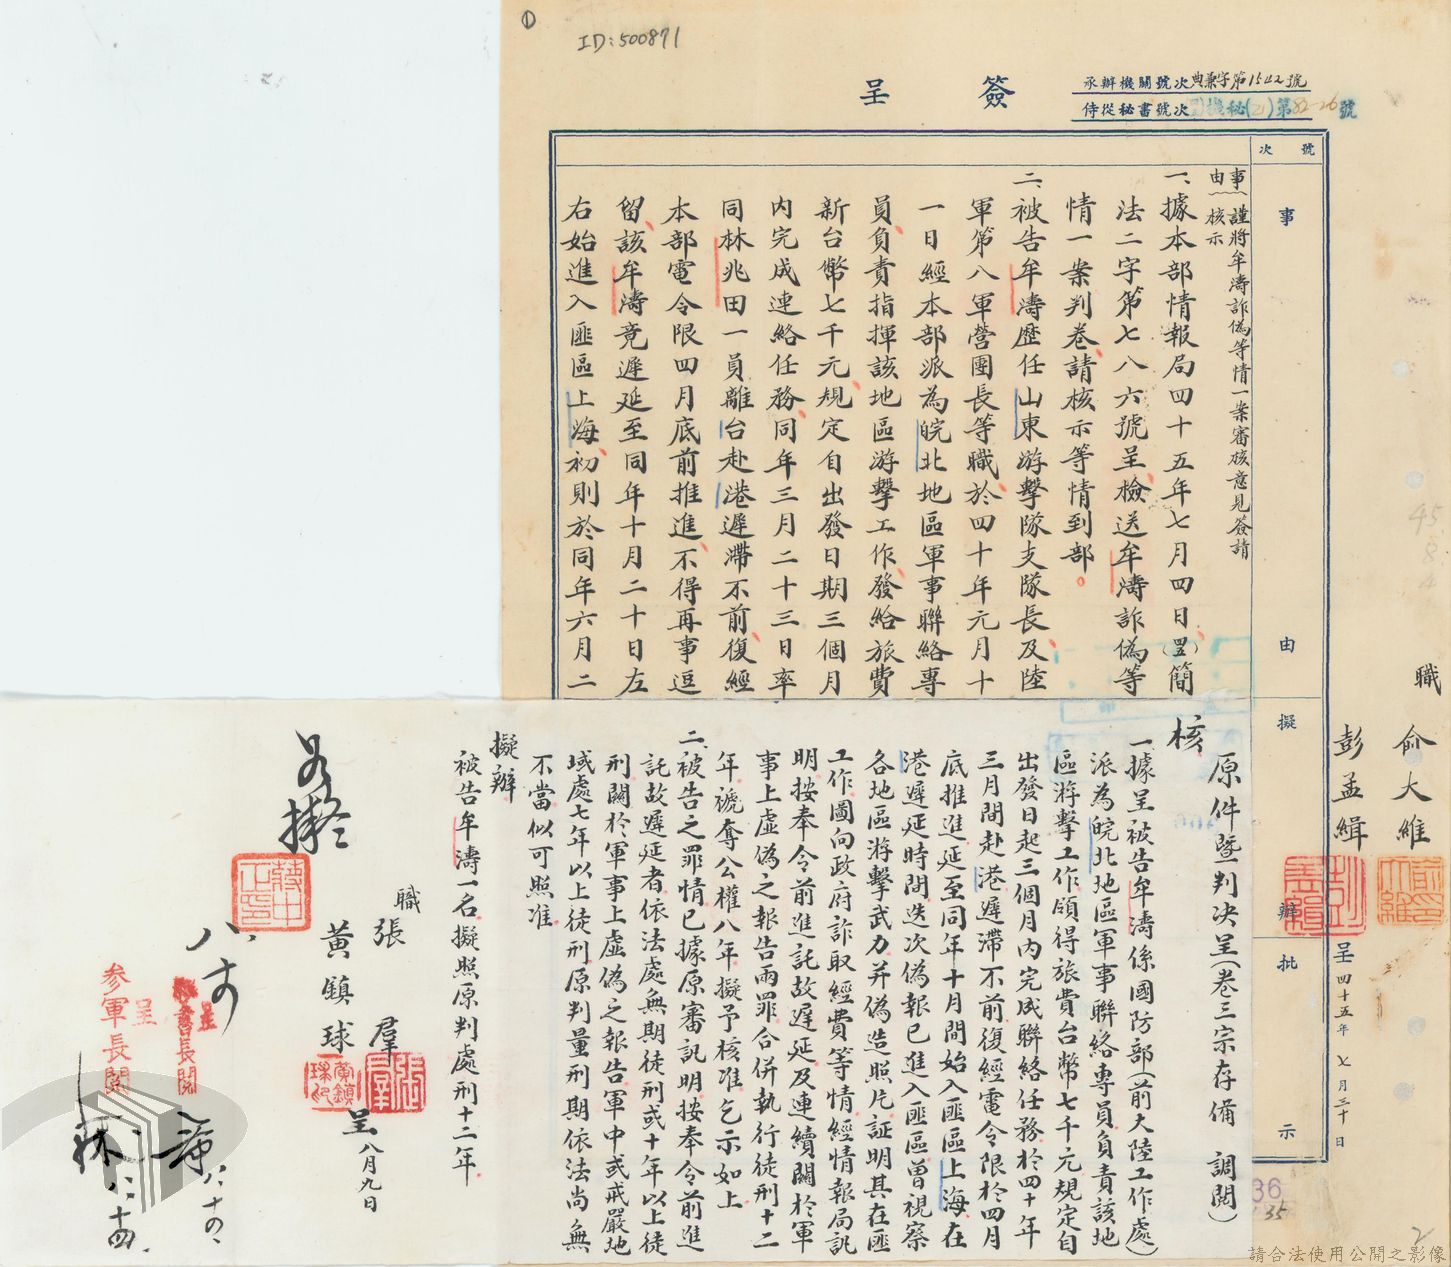 ID:500871
簽呈
承辦機關號次典兼字第1542號
侍從秘書號次機秘(乙)第82-26號
號次
事由
擬辦
批示
事由:謹將牟濤詐偽等情一案審核意見簽請
核示
一、據本部情報局四十五年七月四日(罡)簡
法二字第七八六號呈檢送牟濤詐偽等
情一案判卷請核示等情到部。
二、被告牟濤歷任山東游擊隊支隊長及陸
軍第八軍營團長等職於四十年元月十
一日經本部派為皖北地區軍事聯絡專
員負責指揮該地區游擊工作發給旅費
新台幣七千元規定自出發日期三個月
內完成連絡任務同年三月二十三日率
同林兆田一員離台赴港遲滯不前復經
本部電令限四月底前推進不得再事逗
留該牟濤竟遲延至同年十月二十日左
右始進入匪區上海初則於同年六月二
職
俞大維
彭孟緝
呈四十五年七月三十日
原件暨判决呈(卷三宗存備 調閱)
核
一據呈被告牟濤係國防部(前大陸工作處)
派為皖北地區軍事聯絡專員負責該地
區游擊工作頒得旅費台幣七千元規定自
出發日起三個月內完成聯絡任務於四十年
三月間赴港遲滯不前復經電令限於四月
底推進延至同年十月間始入匪區上海在
港遲延時間迭次偽報已進入匪區曾視察
各地區游擊武力并偽造照片証明其在匪
工作圖向政府詐取經費等情經情報局訊
明按奉令前進託故遲延及連續關於軍
事上虛偽之報告兩罪合併執行徒刑十二
年褫奪公權八年擬予核准乞示如上
二、被告之罪情已據原審訊明按奉令前進
託故遲延者依法處無期徒刑或十年以上徒
刑關於軍事上虛偽之報告軍中或戒嚴地
域處七年以上徒刑原判量刑期依法尚無
不當似可照准
擬辦
被告牟濤一名擬照原判處刑十二年
職
張羣
黃鎮球
呈八月九日
如擬
蔣中正印
八、十
呈
秘書長閱
八、十四、
呈
參軍長閱
八、十四、
36
35
請合法使用公開之影像